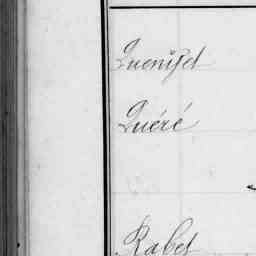 Quenisset
Quéré
Rabet